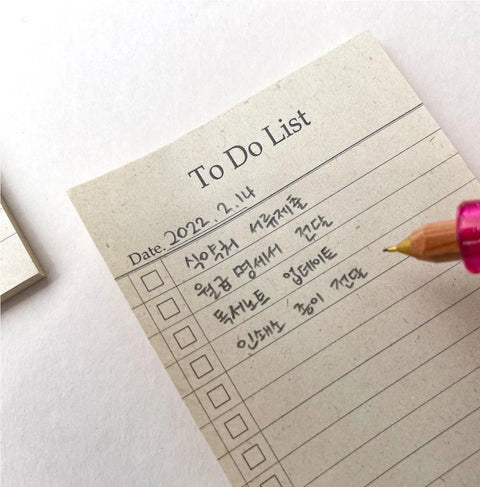 To Do List
Date. 2022. 2. 14
식약처 서류제출
월급 명세서 전달
독서노트 업데이트
인쇄소 종이 전달